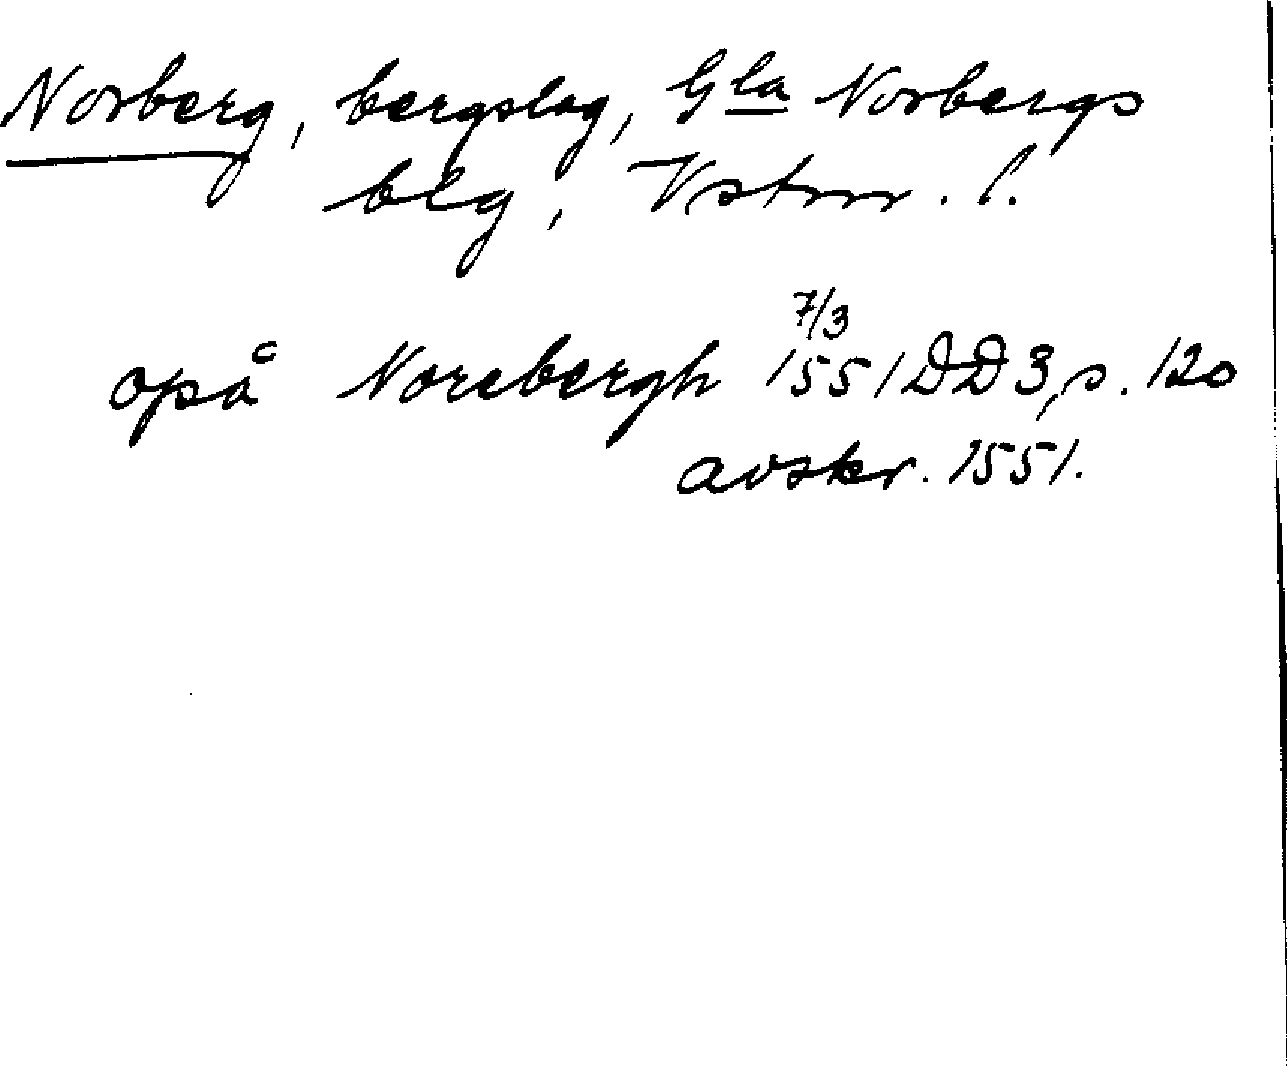 Norberg, bergslag, Gla Norbergs
blg, Vstm. l.
opå Norebergh 7/3 1551 DD 3, s. 120
avskr. 1551.